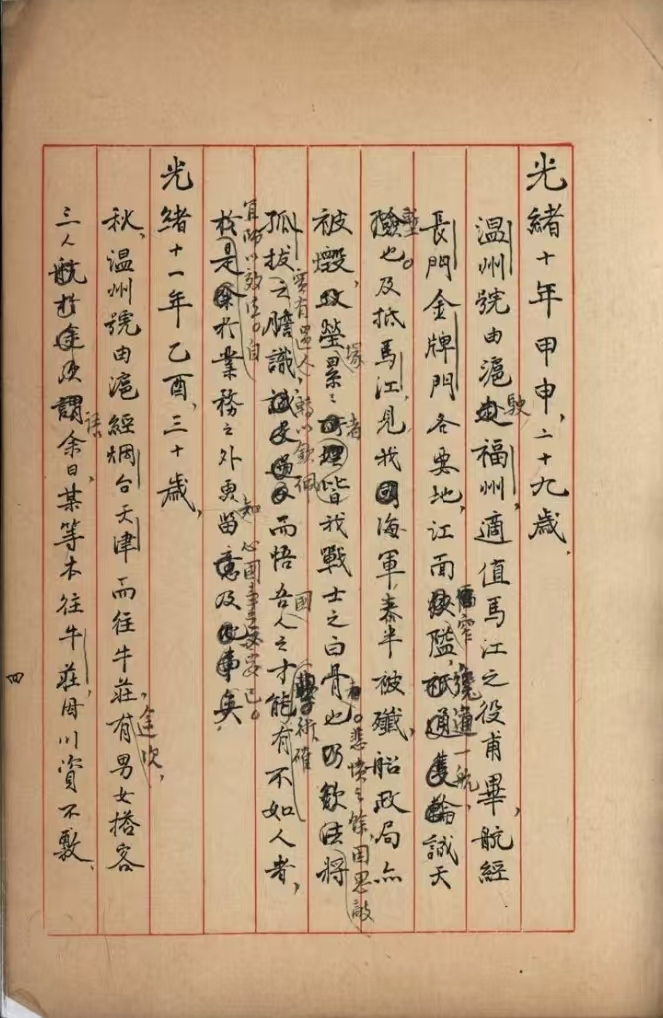 光緒十年甲申，二十九歲，
溫州號由滬駛福州，適值馬江之役甫畢，航經
長門金牌門各要地，江面窄隘，僅通一航，誠天
塹也。及抵馬江，見我海軍泰半被殲，船政局亦
被燬，塚塋累累者皆我戰士之白骨也。悲憤之餘，因思敵將
孤拔之膽識，實有過人，而悟吾人之才學術，確有不如人者，
於是於業務之外更留心國事
宜師以效法。自
光緒十一年乙酉，三十歲，
秋，溫州號由滬經烟台天津而往牛莊，途次，有男女搭客
三人語余曰，某等本往牛莊，因川資不敷，
四